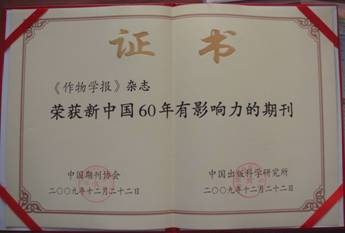 证书
《作物学报》杂志
荣获新中国60年有影响力的期刊
中国期刊协会
二〇〇九年十二月二十二日
中国出版科学研究所
二〇〇九年十二月二十二日